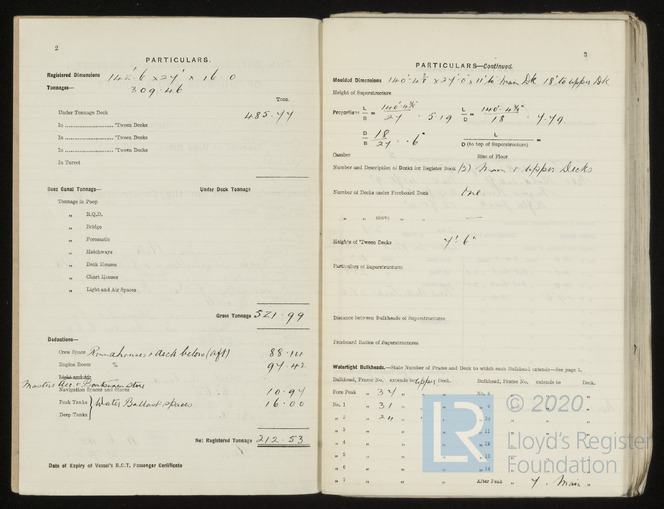 2
PARTICULARS.
Registered Dimensions 142'.6 x 27'.0 x 16.0
Tonnages— 309.46
Tons.
Under Tonnage Deck 485.77
In .................... 'Tween Decks
In .................... 'Tween Decks
In .................... 'Tween Decks
In Turret
Under Deck Tonnage
Tonnage in Poop
„ R.Q.D.
„ Bridge
„ Forecastle
„ Hatchways
„ Deck Houses
„ Chart Houses
„ Light and Air Spaces
Gross Tonnage 521.99
Deductions—
Crew Space Roundhouse & deck below (Aft) 88.
Engine Room % 94.42
Light and Air
Masters Acc. & Boatswain Store
Navigation Spaces and Stores 10.94
Peak Tanks } Water Ballast spaces 16.00
Deep Tanks
Net Registered Tonnage 212.53
Date of Expiry of Vessel's B.O.T. Passenger Certificate
3
PARTICULARS—Continued.
Moulded Dimensions 140'-4¾" x 27'.0 x 11' to Main Dk 18' to upper Dk
Height of Superstructure
Proportions L/B = 140'-4¾"/27 = 5.19 L/D = 140'-4¾"/18 = 7.79
D/B = 18/27 = .6 L/D (to top of Superstructure) =
Camber Rise of Floor
Number and Description of Decks for Register Book (2) Main & Upper Decks
Number of Decks under Freeboard Deck One
„ „ above „ —
Heights of 'Tween Decks 7'.6"
Particulars of Superstructures
Distance between Bulkheads of Superstructures
Freeboard Ratios of Superstructures
Watertight Bulkheads.—State Number of Frame and Deck to which each Bulkhead extends—See page 1.
Bulkhead, Frame No. extends to upper Deck. Bulkhead, Frame No. extends to Deck.
Fore Peak „ 37 „ No. 8
No. 1 „ 31 „ „ 9
„ 2 „ „
„ 3 „
„ 4 „
„ 5 „
„ 6 „ „ 14
„ 7 „ After Peak „ 7 „ Main „
© 2020
LR
Lloyd's Register
Foundation